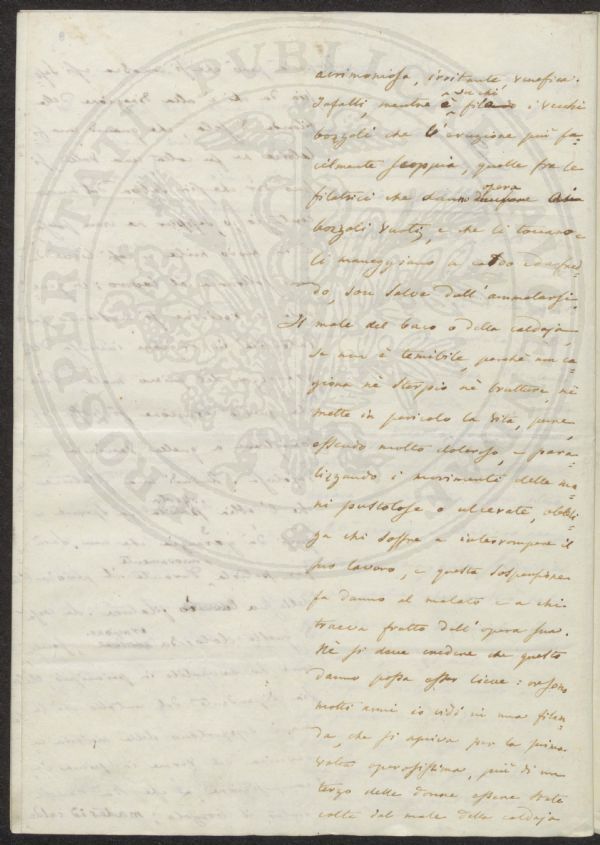 acrimoniosa, irritante, venefica.
Infatti, mentre è su chi fila i vecchi
bozzoli che l'eruzione più fa=
cilmente scoppia, quelle fra le
filatrici che danno opera
bozzoli vuoti, e che li toccano e
li maneggiano a caldo e a fred=
do, son salve dall'ammalarsi.
Il male del baco o della caldaja,
se non è temibile, perchè non ca=
giona nè storpio nè bruttura, nè
mette in pericolo la vita, pure,
essendo molto doloroso, e para=
lizzando i movimenti delle ma=
ni pustolose o ulcerate, obbli=
ga chi soffre a interrompere il
suo lavoro, e questa sospensione
fa danno al malato e a chi
traeva frutto dell'opera sua.
Nè si deve credere che questo
danno possa esser lieve: or sono
molti anni io vidi in una filan=
da, che si apriva per la prima
volta operosissima, più di un
terzo delle donne essere state
colte dal male della caldaja
PUBLIC
PROSPERITATI